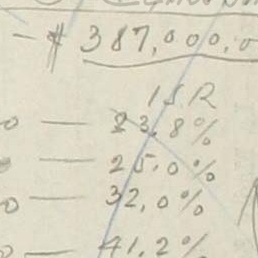 - $ 387,000,0
ISR
0 — 23,8%
— 25,0%
0 — 32,0%
0 — 41,2%